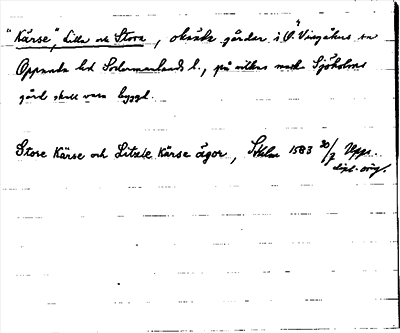 "Kärse", Lilla och Stora, okända gårdar i Ö. Vingåkers sn
Oppunda hd Södermanlands l., på vilkas mark Sjöholms
gård skall vara byggd.
Store Kärse och Litzle Kärse ägor, Sthlm 1583 20/7 Upps.
dipl. orig.